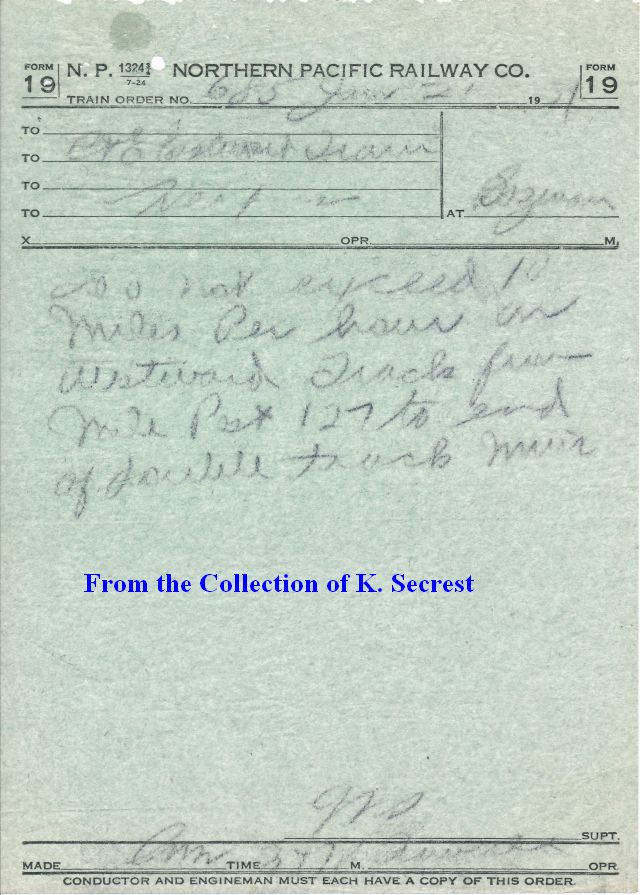 FORM 19 N. P. 1324½ 7-24 NORTHERN PACIFIC RAILWAY CO. FORM 19
TRAIN ORDER NO. 685 19
TO
TO C&E Eastward Train
TO
TO AT Bozeman
X OPR. M.
Do not exceed 10
Miles Per hour on
Westward Track from
Mile Post 127 to end
of double track Muir
From the Collection of K. Secrest
SUPT.
MADE Com TIME M. OPR
CONDUCTOR AND ENGINEMAN MUST EACH HAVE A COPY OF THIS ORDER.